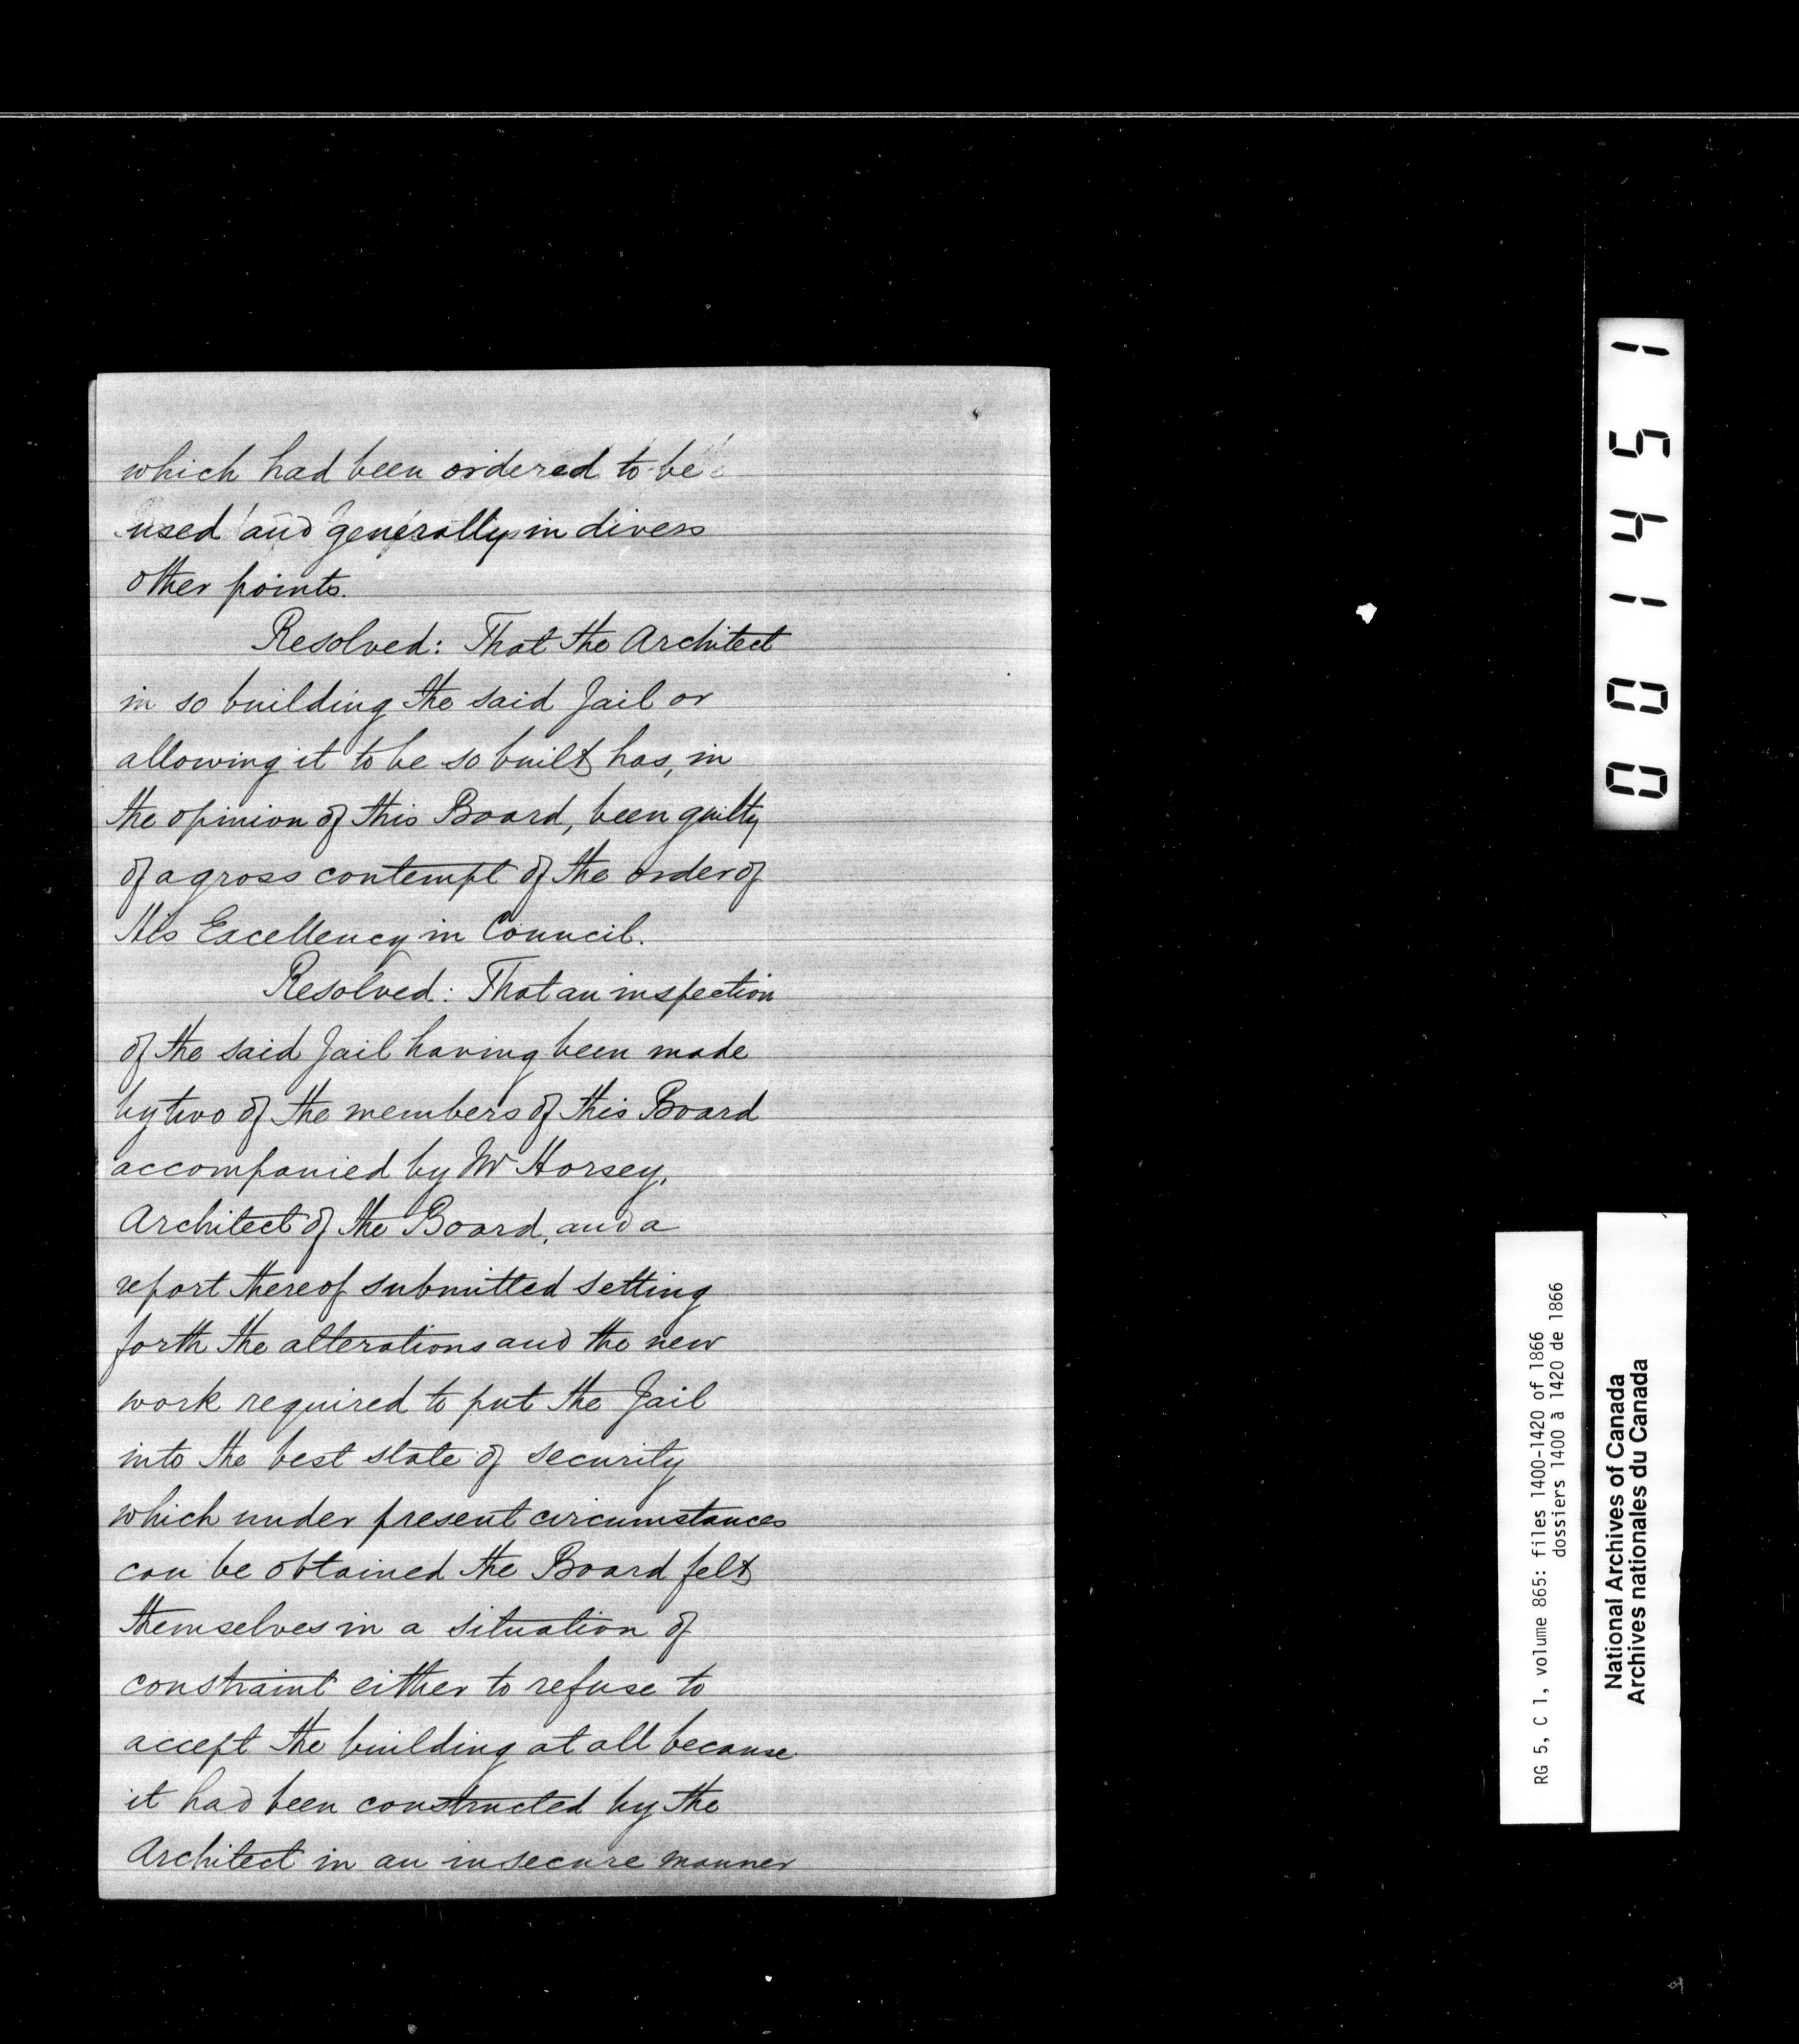 which had been ordered to be
used and generally in divers
other points.
Resolved: That the Architect
in so building the said Jail or
allowing it to be so built has, in
the opinion of this Board, been guilty
of a gross contempt of the order of
His Excellency in Council.
Resolved: That an inspection
of the said Jail having been made
by two of the members of this Board
accompanied by Mr Horsey,
Architect of the Board, and a
report thereof submitted setting
forth the alterations and the new
work required to put the Jail
into the best state of security
which under present circumstances
can be obtained the Board felt
themselves in a situation of
constraint either to refuse to
accept the building at all because
it had been constructed by the
Architect in an insecure manner
001451
RG 5, C 1, volume 865: files 1400-1420 of 1866
dossiers 1400 à 1420 de 1866
National Archives of Canada
Archives nationales du Canada